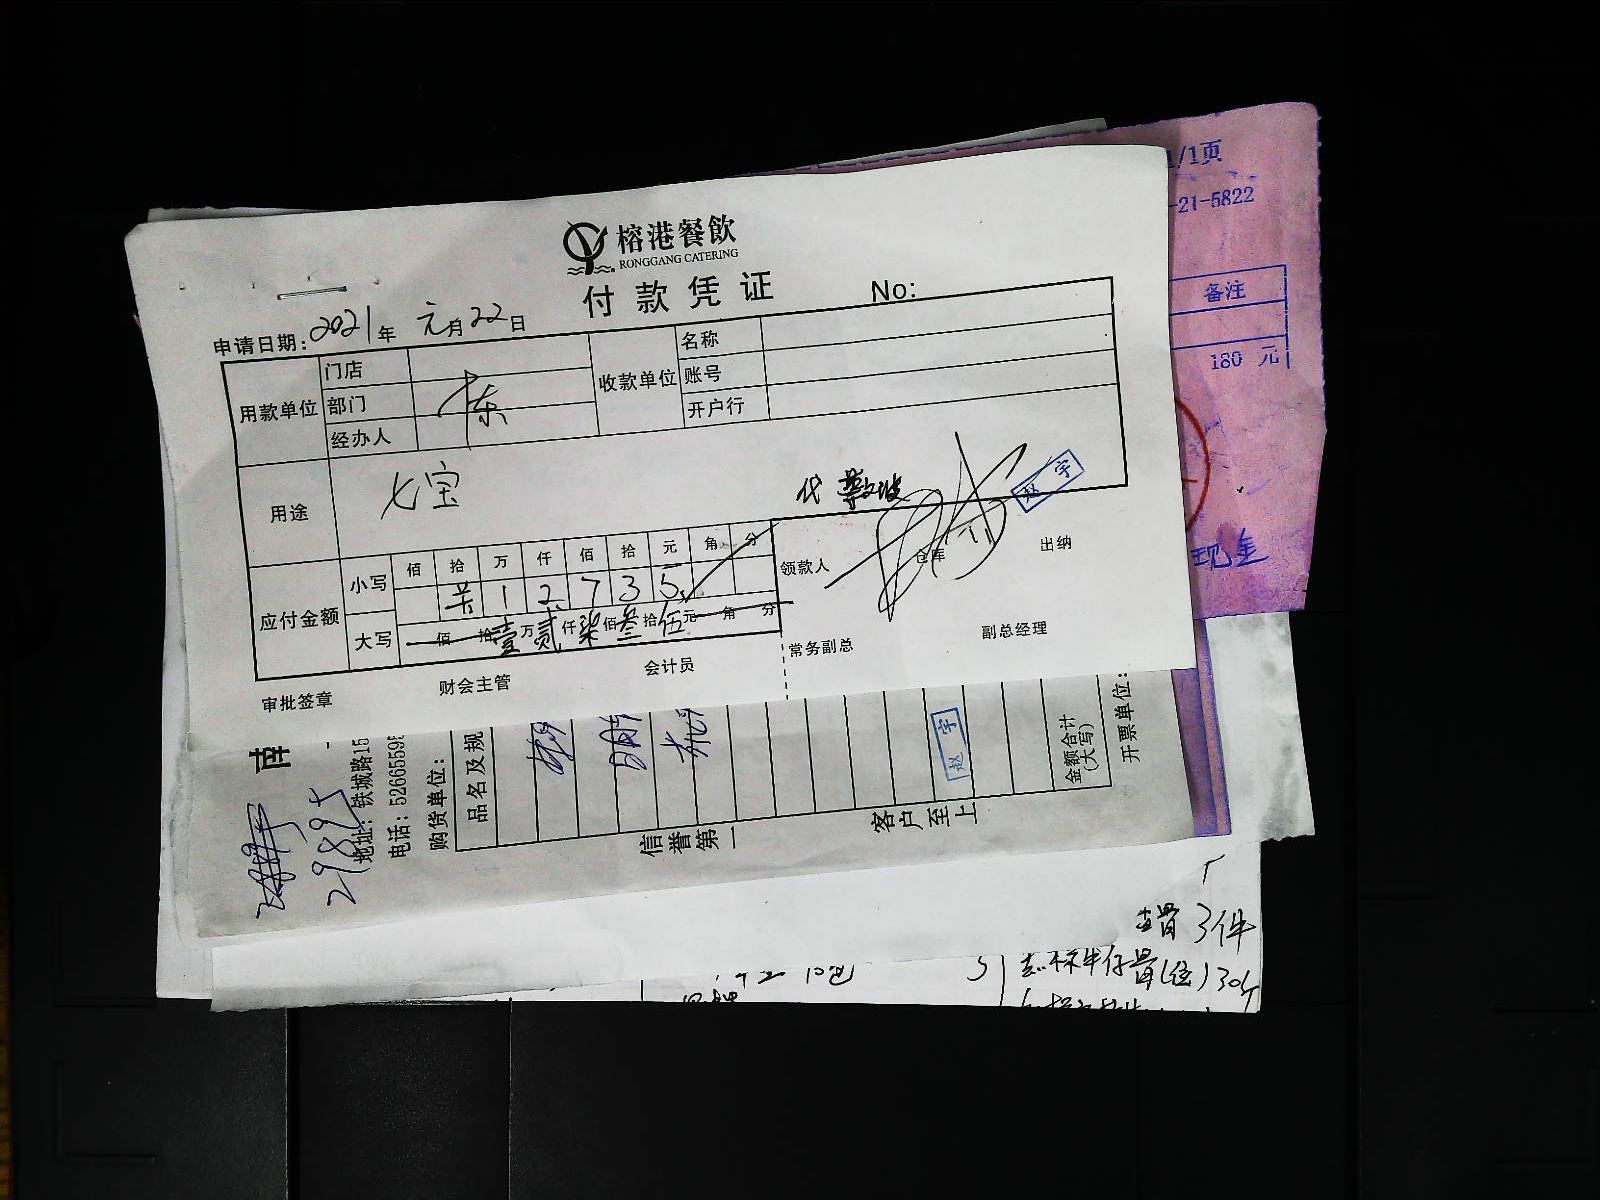 榕港餐飲
RONGGANG CATERING
付款凭证
No:
申请日期: 2021年 元月22日
用款单位 门店 收款单位 名称
部门 东 账号
经办人 开户行
用途 七宝
代
赵宇
应付金额 小写 佰 拾 万 仟 佰 拾 元 角 分
1 2 7 3 5
大写 佰 拾 壹 万 贰 仟 柒 佰 叁 拾 伍 元 角 分
领款人 仓库 出纳
常务副总 副总经理
审批签章 财会主管 会计员
1/1页
-21-5822
备注
180 元
现金
南
29895
地址: 铁城路15
电话: 5266559
购货单位:
品名及规
赵宇
金额合计
(大写)
开票单位:
信誉第一
客户至上
3件
10包
牛仔骨(位)30